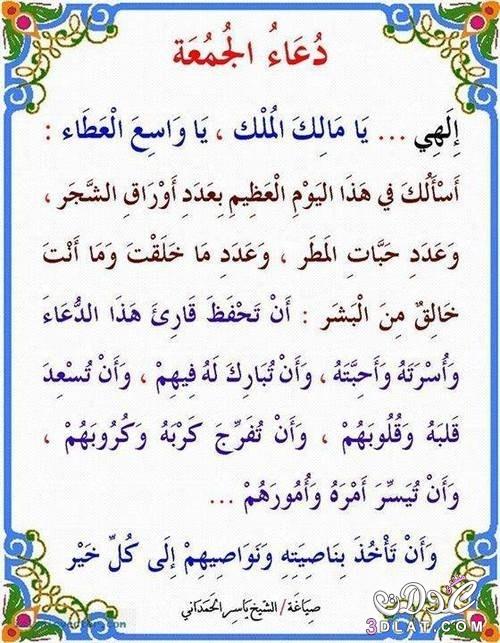 دُعَاءُ الْجُمُعَة
إِلَهِي ... يَا مَالِكَ الْمُلْكِ ، يَا وَاسِعَ الْعَطَاء :
أَسْأَلُكَ في هَذَا اليَوْمِ الْعَظِيمِ بِعَدَدِ أَوْرَاقِ الشَّجَرِ ،
وَعَدَدِ حَبَّاتِ الْمَطَر ، وَعَدَدِ مَا خَلَقْتَ وَمَا أَنْتَ
خَالِقٌ مِنَ الْبَشَر : أَنْ تَحْفَظَ قَارِئَ هَذَا الدُّعَاءَ
وَأُسْرَتَهُ وَأَحِبَّتَهُ ، وَأَنْ تُبَارِكَ لَهُ فِيهِمْ ، وَأَنْ تُسْعِدَ
قَلبَهُ وَقُلُوبَهُمْ ، وَأَنْ تُفَرِّجَ كَرْبَهُ وَكُرُوبَهُمْ ،
وَأَنْ تُيَسِّرَ أَمْرَهُ وَأُمُورَهُمْ ...
وَأَنْ تَأْخُذَ بِنَاصِيَتِهِ وَنَوَاصِيهِمْ إِلَى كُلِّ خَيْر
صِيَاغَة / الشيخ ياسر الحمداني
3DLAT.COM